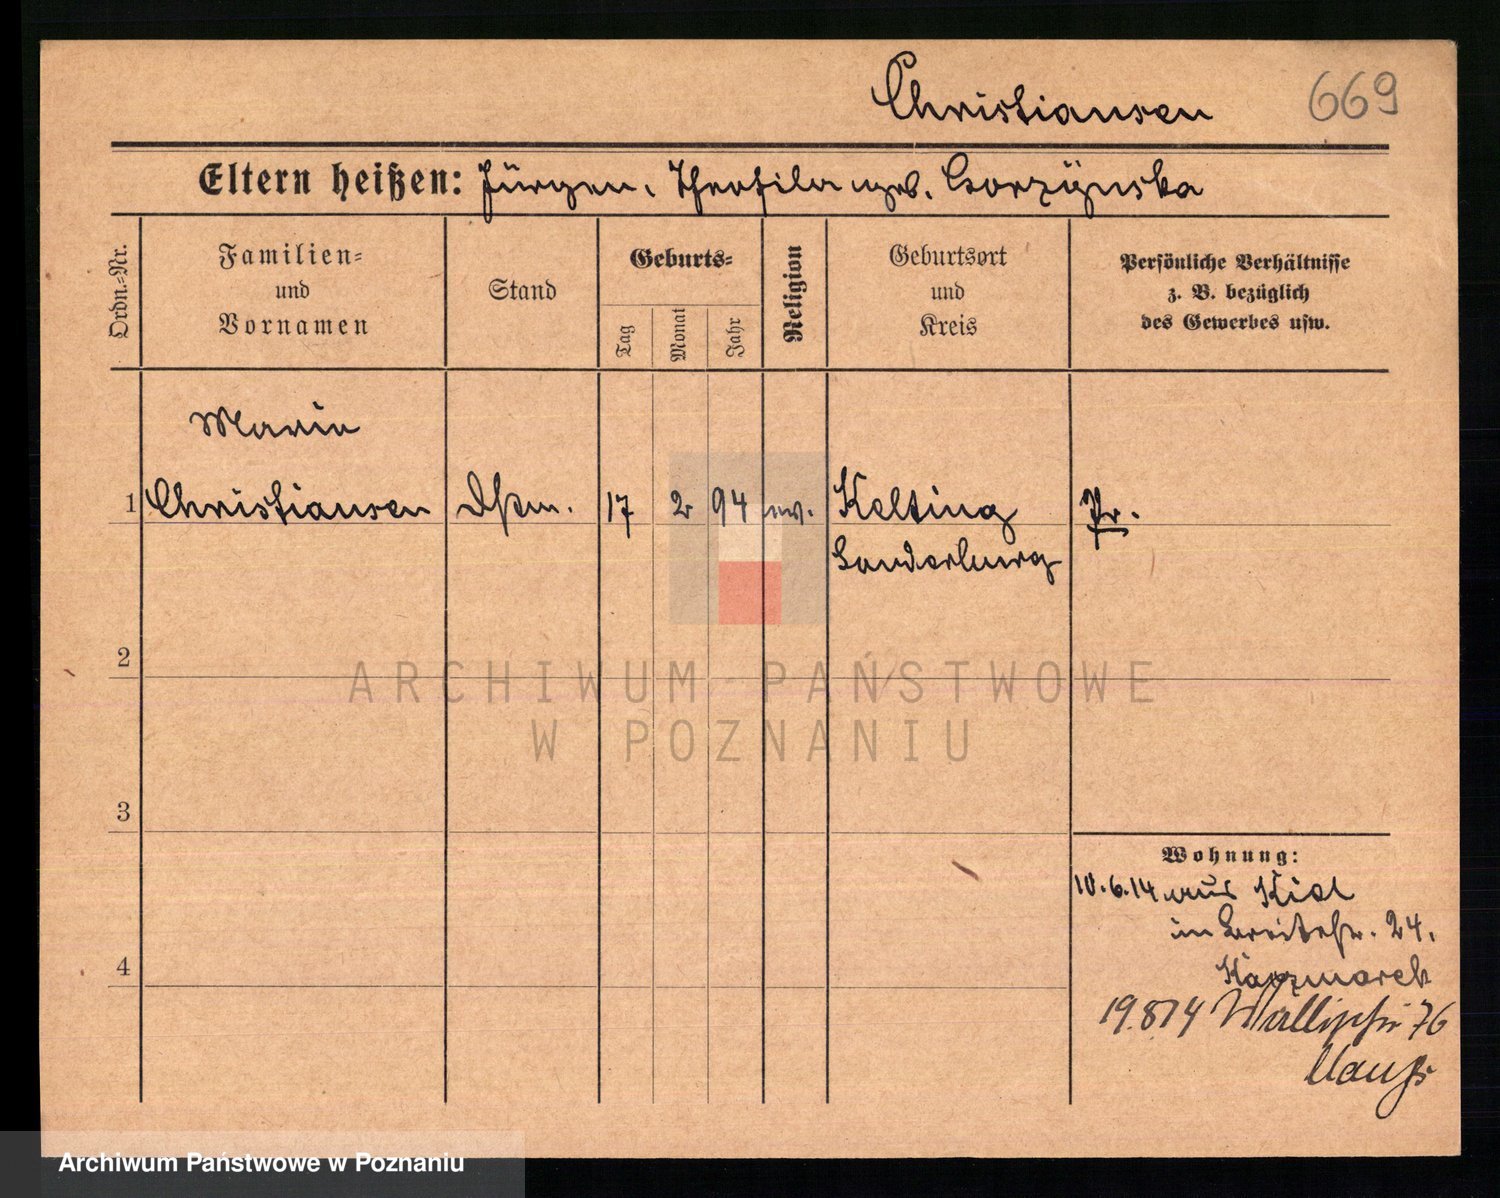 Christiansen 669
Eltern heißen: Jürgen, Theofila geb. Gorzynska
Ordn.-Nr.
Familien-
und
Vornamen
Stand
Geburts-
Tag
Monat
Jahr
Religion
Geburtsort
und
Kreis
Persönliche Verhältnisse
z. B. bezüglich
des Gewerbes usw.
Maria
1 Christiansen 17 2 94 ev. Kelting Pr.
Sonderburg
2
3
4
Wohnung:
10.6.14 aus Kiel
in Breitestr. 24.
Kaczmarek
19.8 14 76
ARCHIWUM PAŃSTWOWE
W POZNANIU
Archiwum Państwowe w Poznaniu